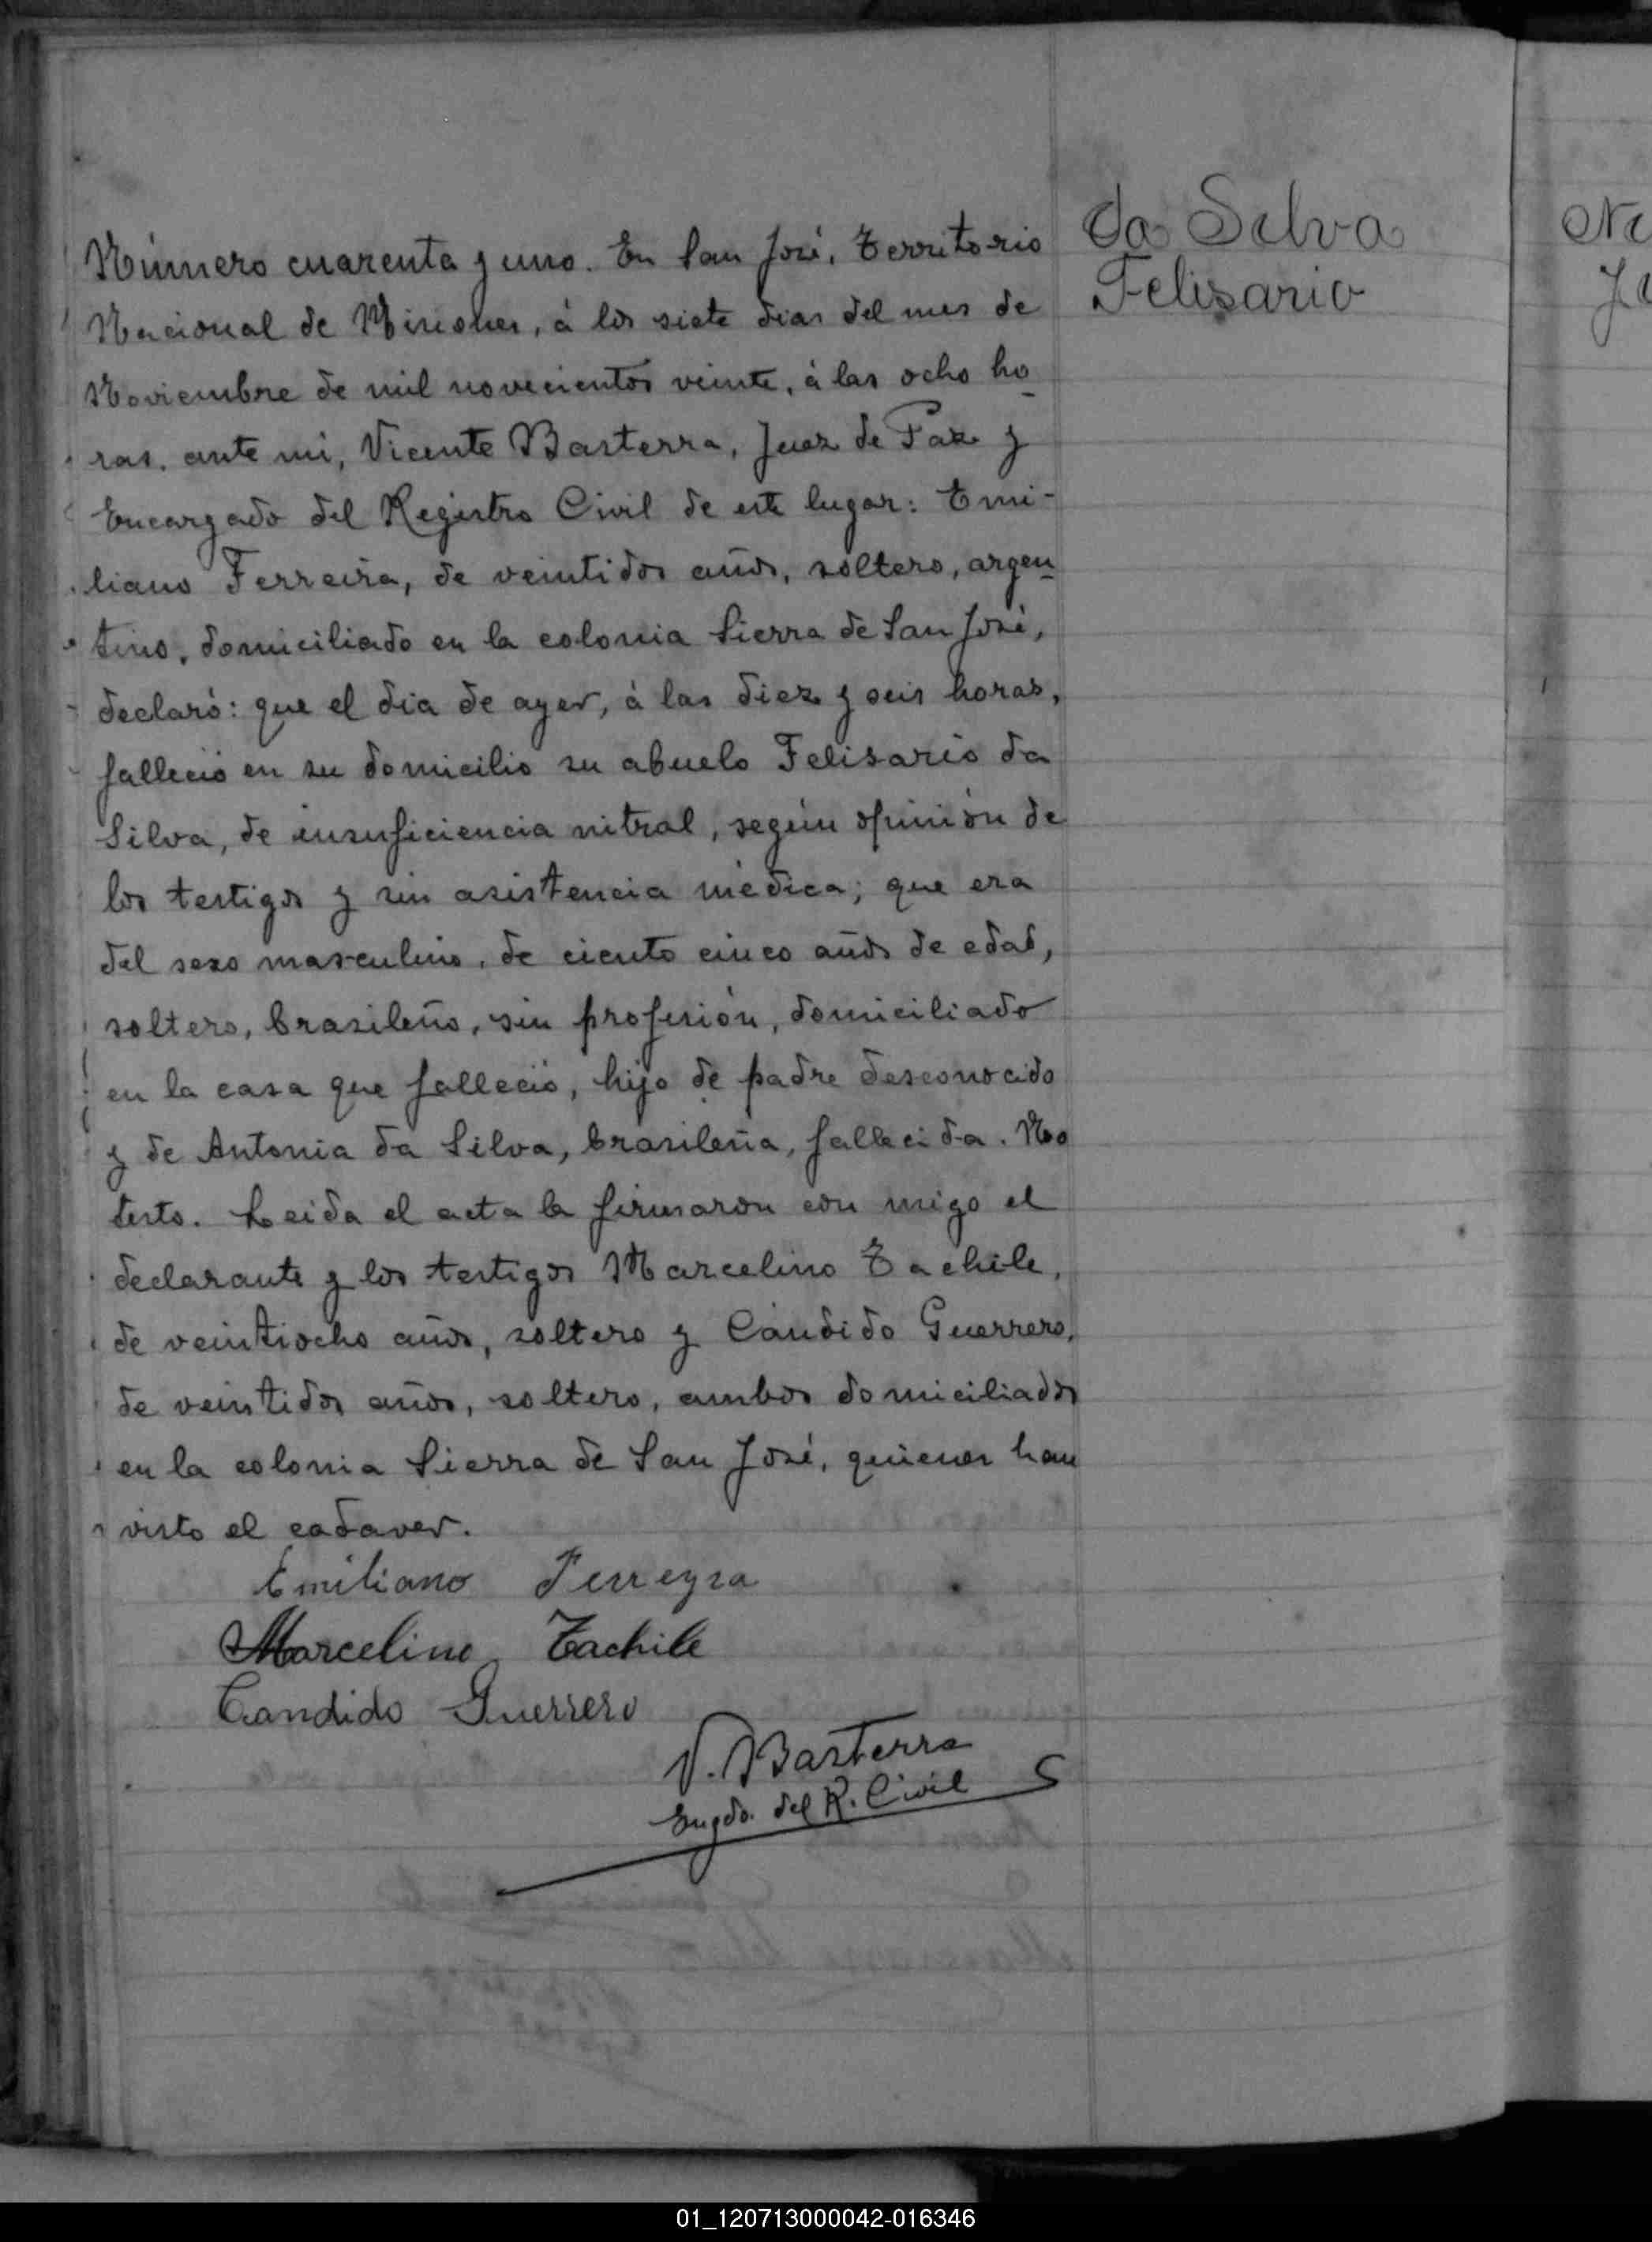 da Silva
Felisario
Número cuarenta y uno. En San José, Territorio
Nacional de Misiones, á los siete dias del mes de
Noviembre de mil novecientos veinte, á las ocho ho
ras, ante mi, Vicente Basterra, Juez de Paz y
Encargado del Registro Civil de este lugar: Emi-
liano Ferreira, de veintidos años, soltero, argen
tino, domiciliado en la colonia Sierra de San José,
declaró: que el dia de ayer, á las diez y seis horas,
falleció en su domicilio su abuelo Felisario da
Silva, de insuficiencia nitral, según opinión de
los testigos y sin asistencia médica; que era
del sexo masculino, de ciento cinco años de edad,
soltero, brasileño, sin profesión, domiciliado
en la casa que falleció, hijo de padre desconocido
y de Antonia da Silva, brasileña, fallecida. No
testo. Leida el acta la firmaron con migo el
declarante y los testigos Marcelino Tachile,
de veintiocho años, soltero y Cándido Guerrero,
de veintidos años, soltero, ambos domiciliados
en la colonia Sierra de San José, quienes han
visto el cadaver.
Emiliano Ferreyra
Marcelino Tachile
Candido Guerrero
V. Basterra
Engdo. del R. Civil
01_120713000042-016346